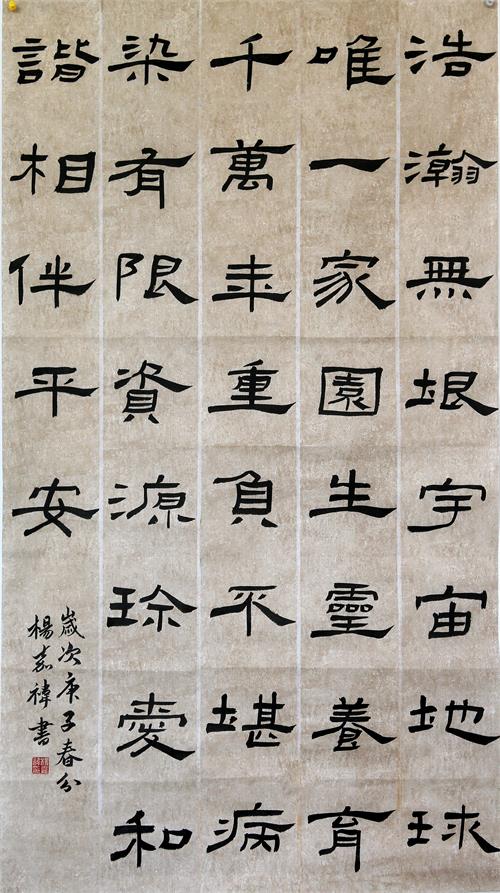 浩瀚無垠宇宙地球
唯一家園生靈養育
千萬年重負不堪病
染有限資源珍愛和
諧相伴平安
歲次庚子春分
楊嘉禕書